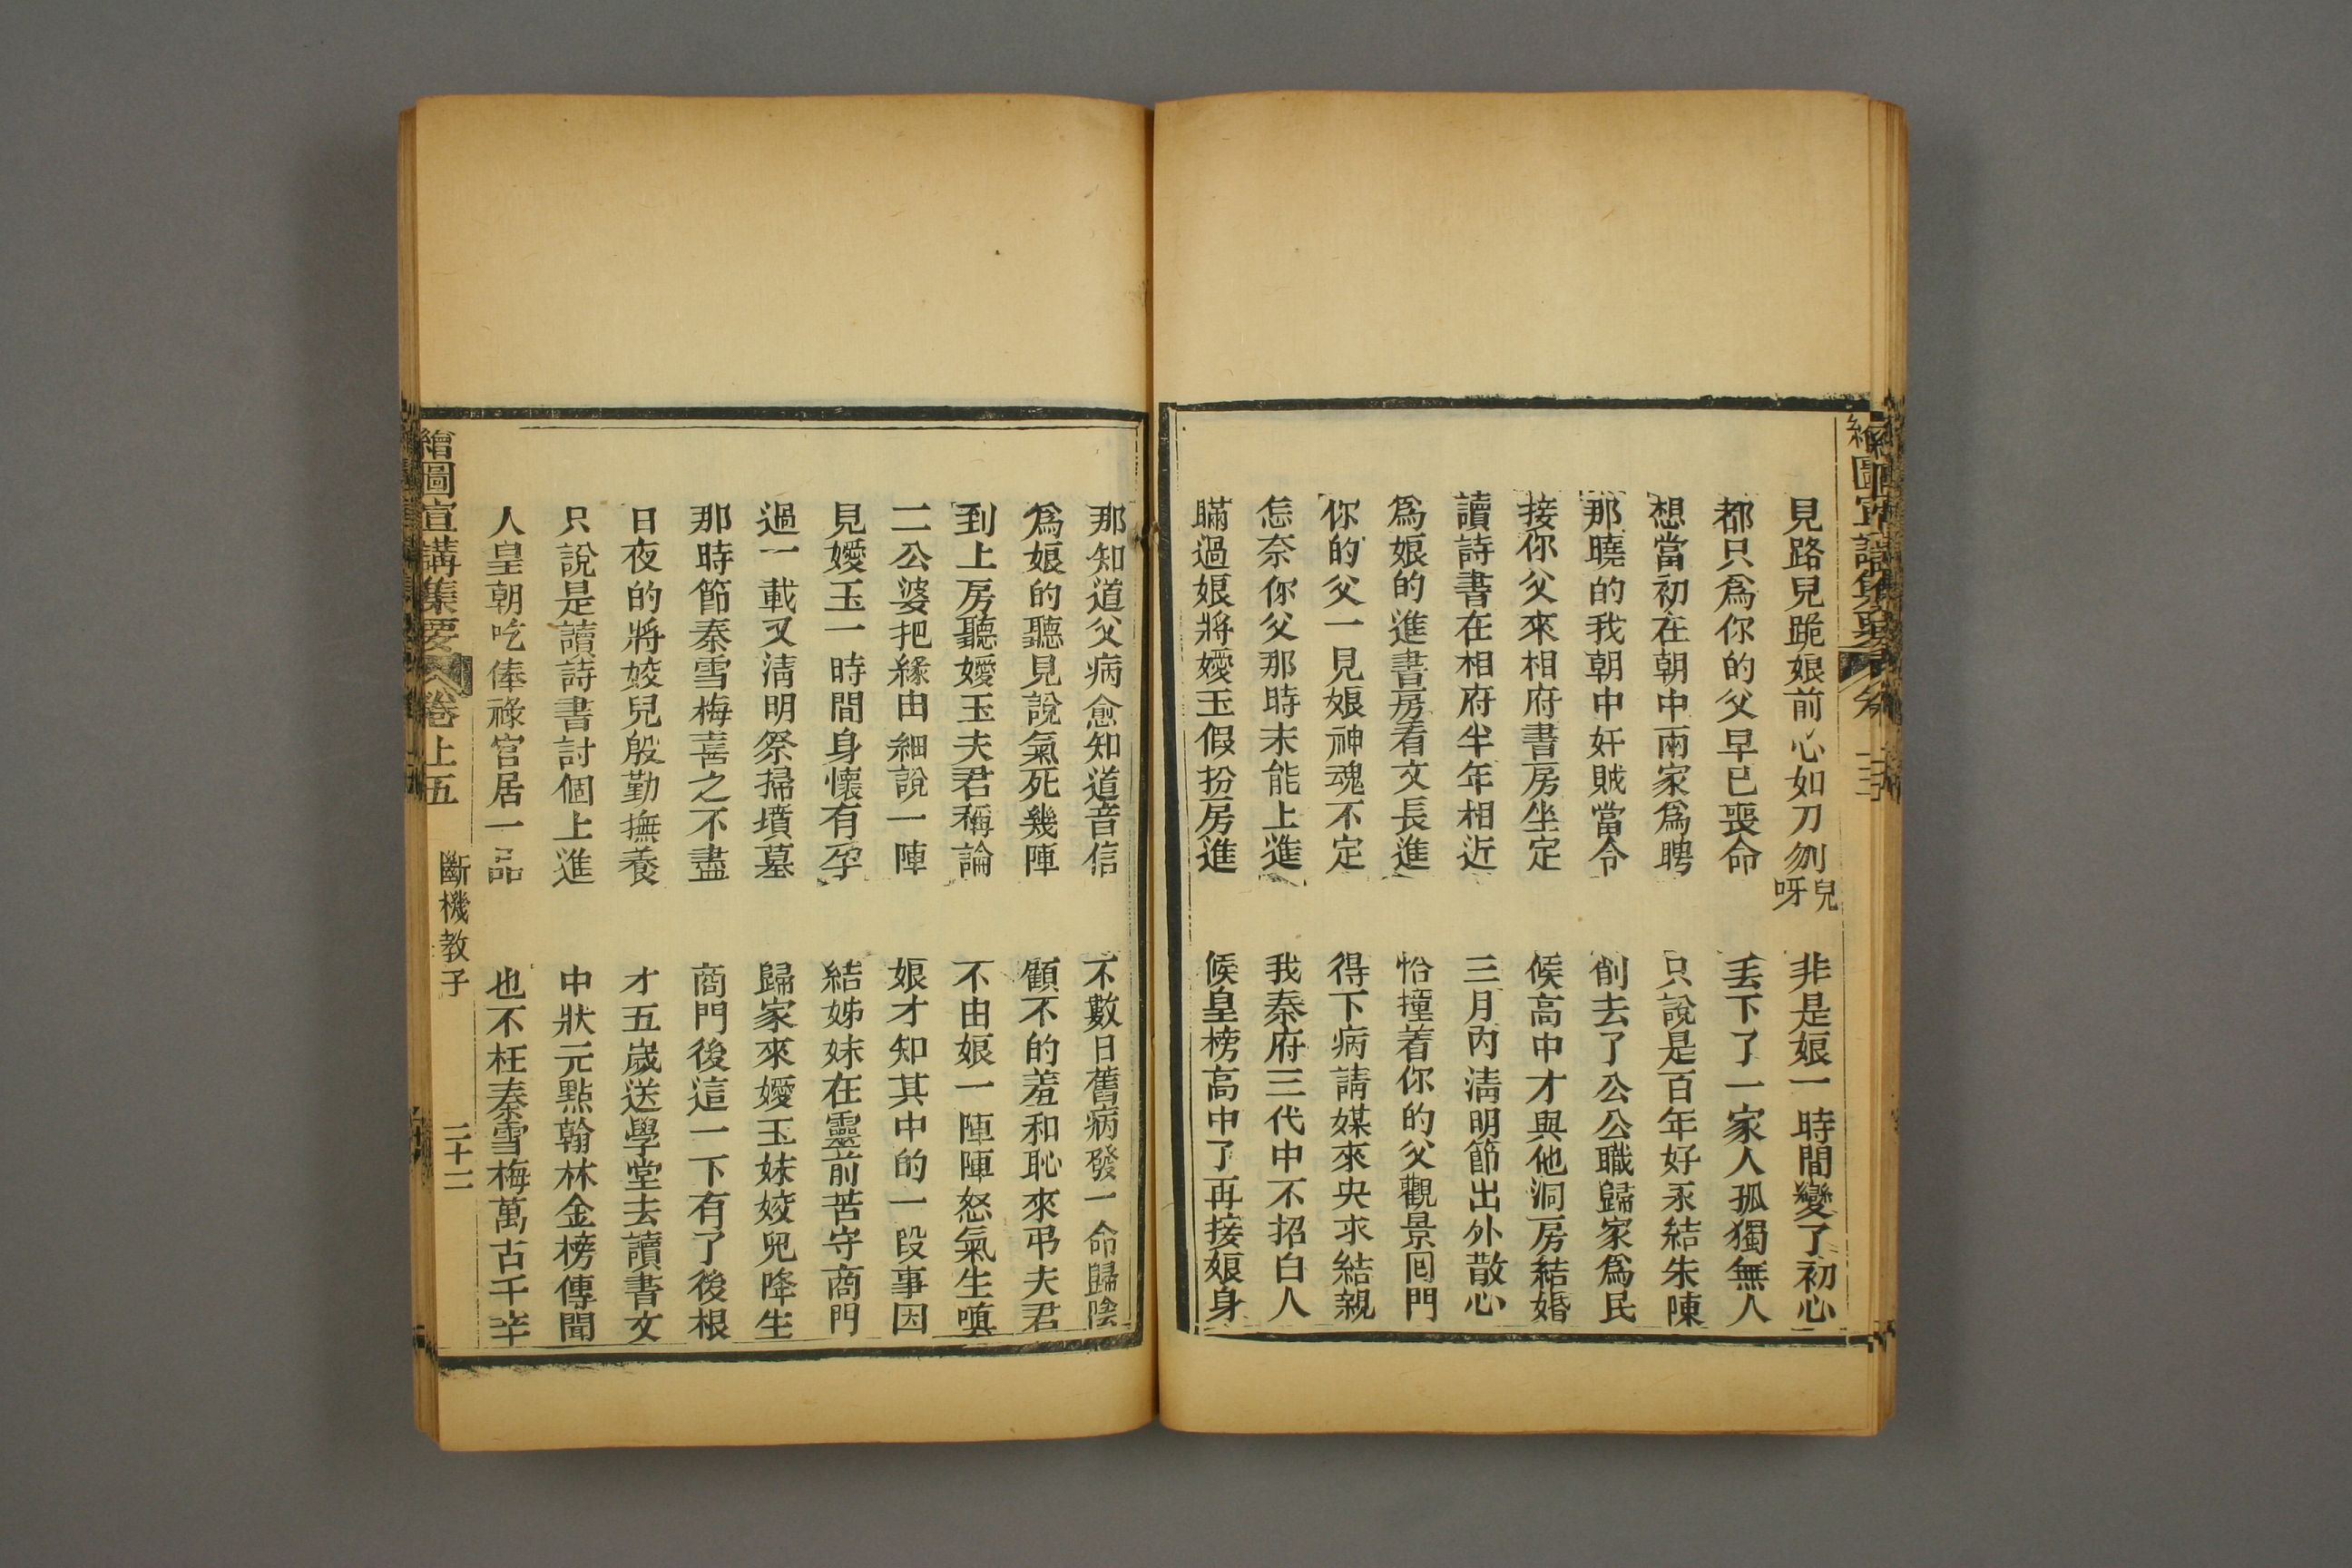 見路兒跪娘前心如刀刎兒呀 非是娘一時間變了初心
都只爲你的父早已喪命 丟下了一家人孤獨無人
想當初在朝中兩家爲聘 只說是百年好永結朱陳
那曉的我朝中奸賊當令 削去了公公職歸家爲民
接你父來相府書房坐定 候高中才與他洞房結婚
讀詩書在相府半年相近 三月內淸明節出外散心
爲娘的進書房看文長進 恰撞着你的父觀景囘門
你的父一見娘神魂不定 得下病請媒來央求結親
怎奈你父那時未能上進 我秦府三代中不招白人
瞞過娘將嬡玉假扮房進 候皇榜高中了再接娘身
那知道父病愈知道音信 不數日舊病發一命歸陰
爲娘的聽見說氣死幾陣 顧不的羞和恥來弔夫君
到上房聽嬡玉夫君稱論 不由娘一陣陣怒氣生嗔
二公婆把緣由細說一陣 娘才知其中的一段事因
見嬡玉一時間身懷有孕 結姊妹在靈前苦守商門
過一載又淸明祭掃墳墓 歸家來嬡玉妹姣兒降生
那時節秦雪梅喜之不盡 商門後這一下有了後根
日夜的將姣兒殷勤撫養 才五歲送學堂去讀書文
只說是讀詩書討個上進 中狀元點翰林金榜傳聞
人皇朝吃俸祿官居一品 也不枉秦雪梅萬古千辛
繪圖宣講集要 卷上五 斷機教子 二十二